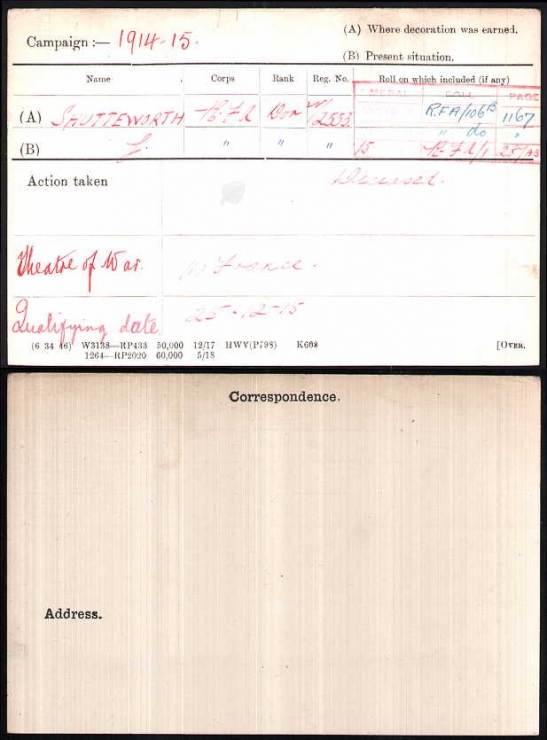 Campaign :— 1914-15.
(A) Where decoration was earned.
(B) Present situation.
Name Corps Rank Reg. No. Roll on which included (if any)
MEDAL ROLL PAGE
(A) SHUTTEWORTH R.F.A W/2553 R.F.A/106B 1167
" do "
(B) " " " 15
Action taken Deceased.
Theatre of War. (1) France.
Qualifying date 25-12-15
(6 34 46) W3138—RP433 50,000 12/17 HWV(P798) K608 [OVER.
1264—RP2020 60,000 5/18
Correspondence.
Address.